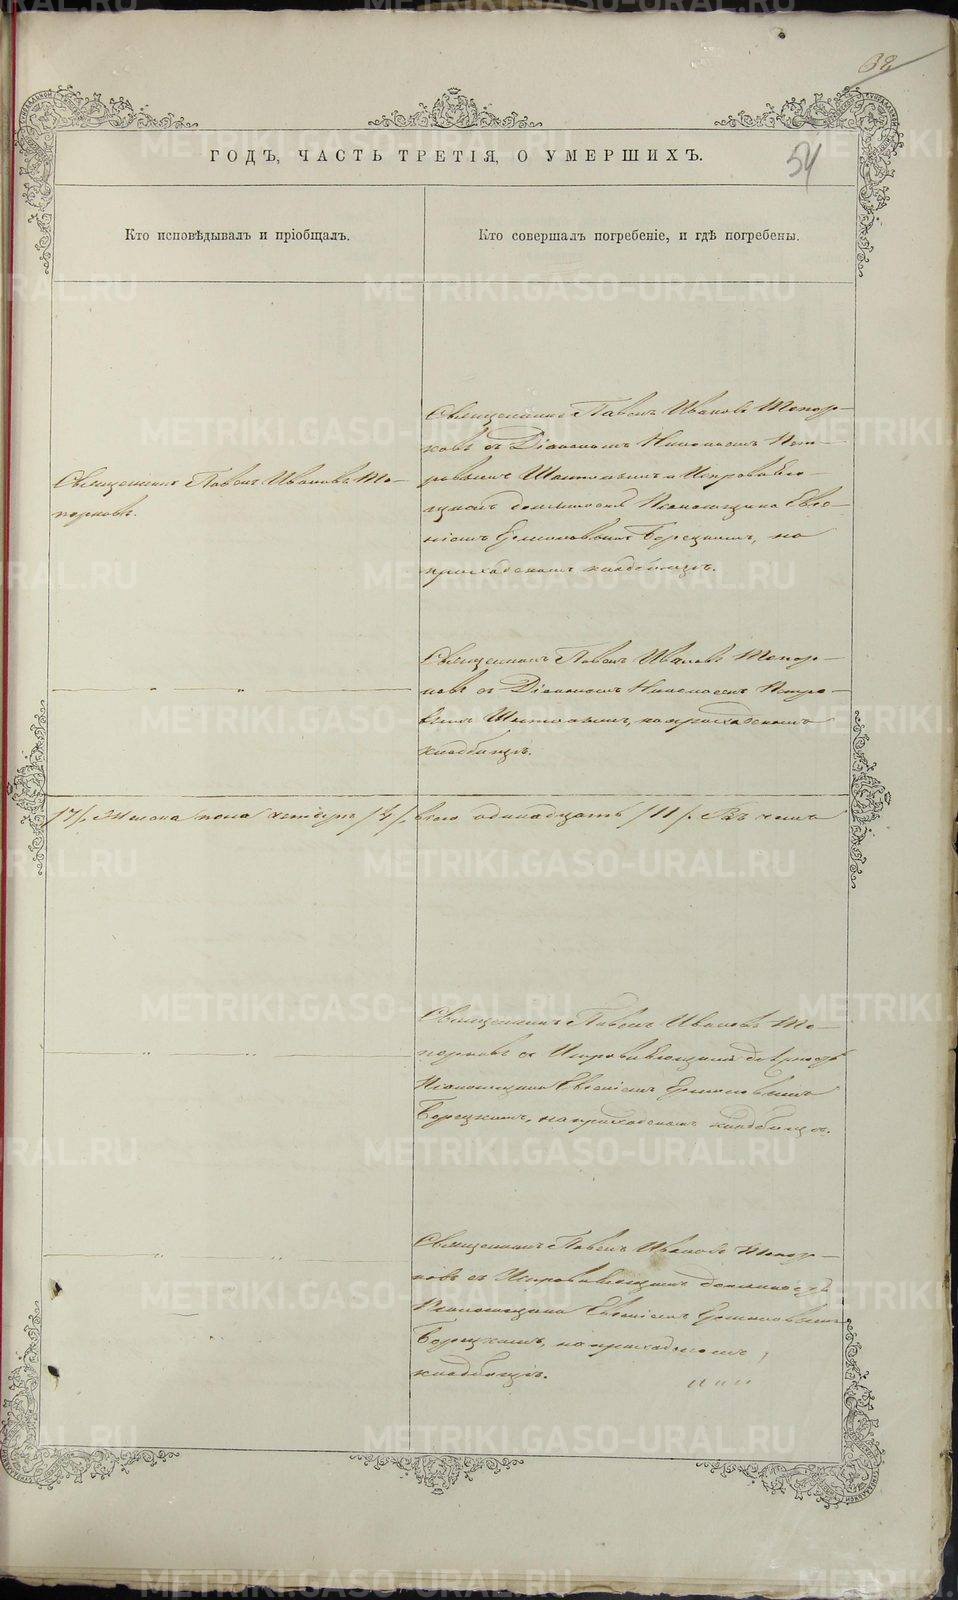 38
54
ГОДЪ, ЧАСТЬ ТРЕТІЯ, О УМЕРШИХЪ.
Кто исповѣдывалъ и пріобщалъ.
Кто совершалъ погребеніе, и гдѣ погребены.
Священникъ Павелъ Ивановъ То-
порковъ.
Священникъ Павелъ Ивановъ Топор-
ковъ съ Діакономъ Николаемъ Пет-
ровымъ и Исправля-
ющимъ должность Псаломщика Евге-
ніемъ Борецкимъ, на
приходскомъ кладбищѣ.
Священникъ Павелъ Ивановъ Топор-
ковъ съ Діакономъ Николаемъ Петро-
вымъ на приходскомъ
кладбищѣ.
/7/. Женска пола четыре /4/, всего одинадцать /11/. Въ томъ
Священникъ Павелъ Ивановъ То-
порковъ съ Исправляющимъ должность
Псаломщика Евгеніемъ
Борецкимъ, на приходскомъ кладбищѣ.
Священникъ Павелъ Ивановъ Топор-
ковъ съ Исправляющимъ должность
Псаломщика Евгеніемъ
Борецкимъ, на приходскомъ
кладбищѣ.
METRIKI.GASO-URAL.RU